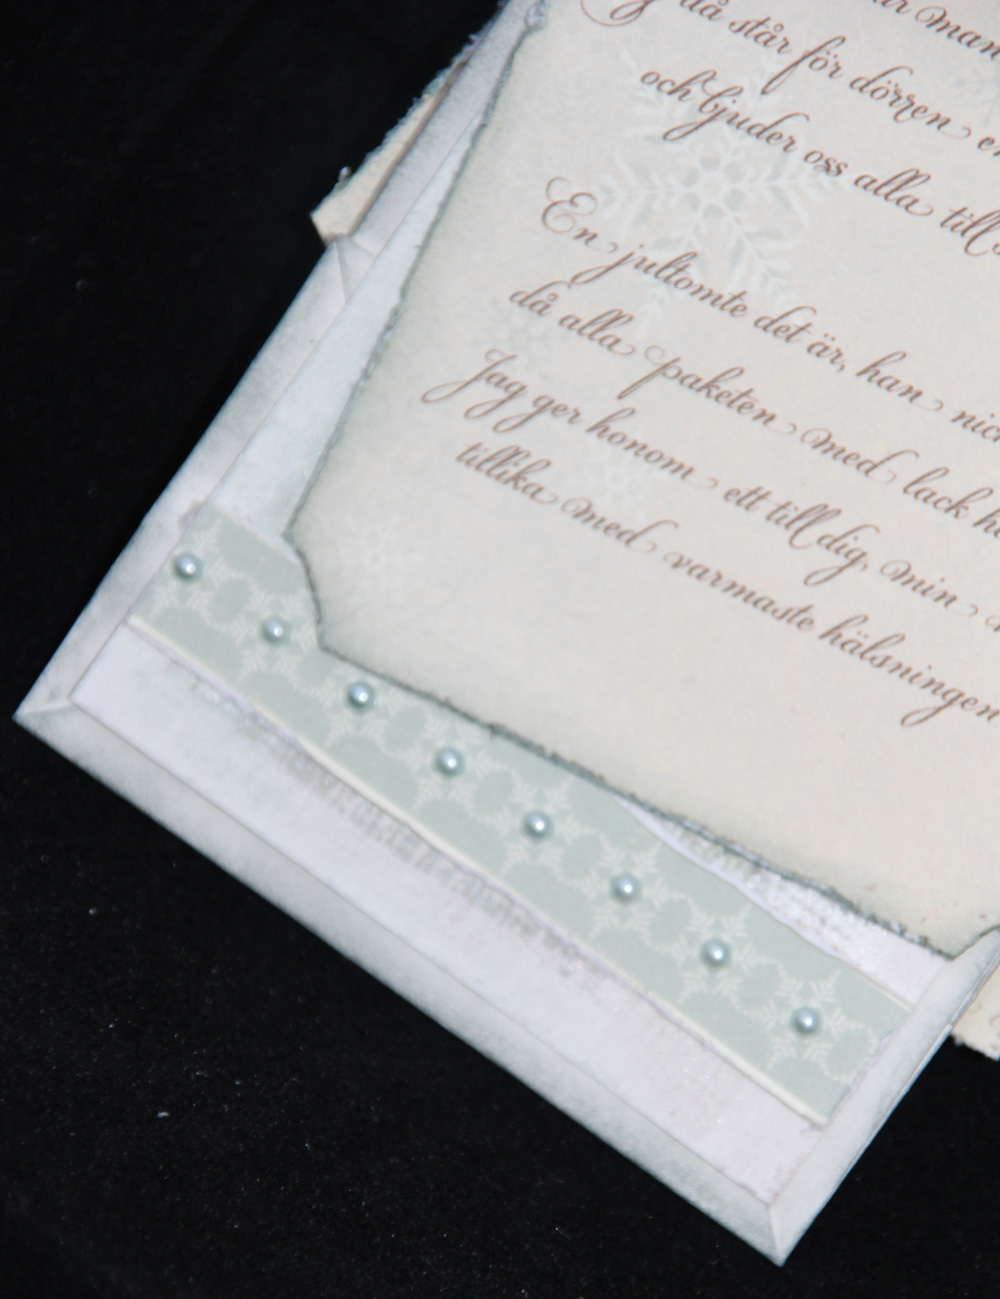 man
då står för dörren en
och bjuder oss alla till
En jultomte det är, han nick
då alla paketen med lack h
Jag ger honom ett till dig, min
tillika med varmaste hälsningen